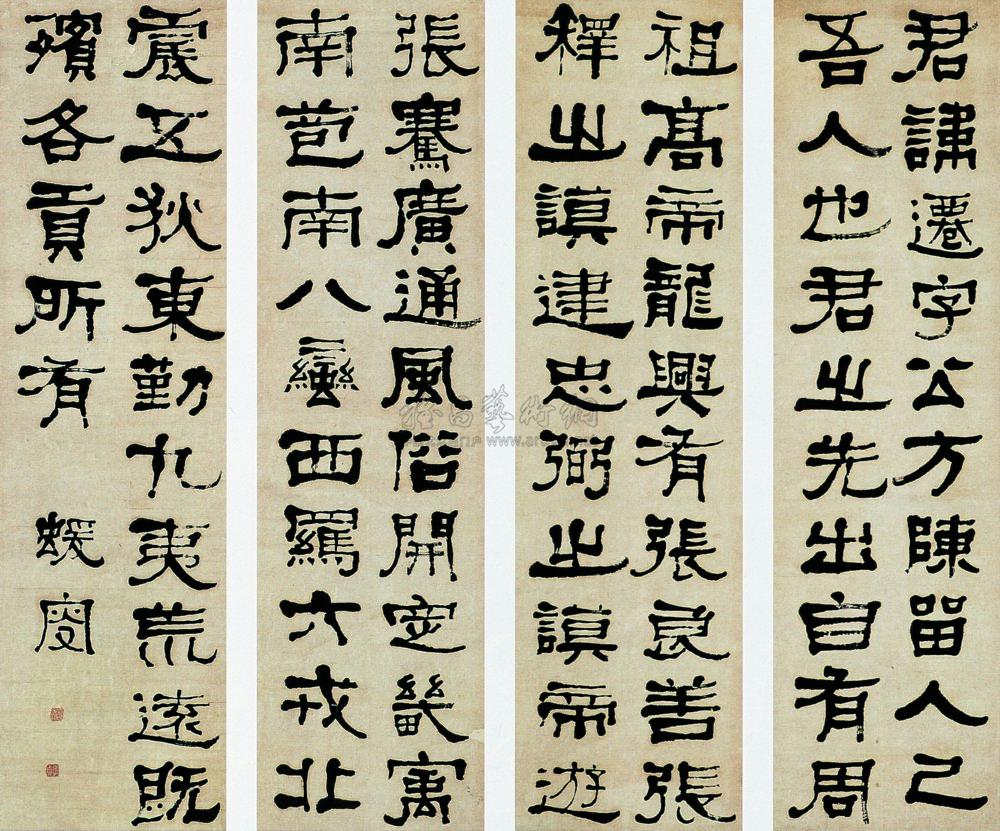 君諱遷字公方陳留人已
吾人也君之先出自有周
祖高帝龍興有張良善張
釋之謨建忠弼之謨帝遊
張騫廣通風俗開定畿寓
南苞南八蠻西羈六戎北
震五狄東勤九夷荒遠既
殯各貢所有 蝯叟
雅昌藝術網